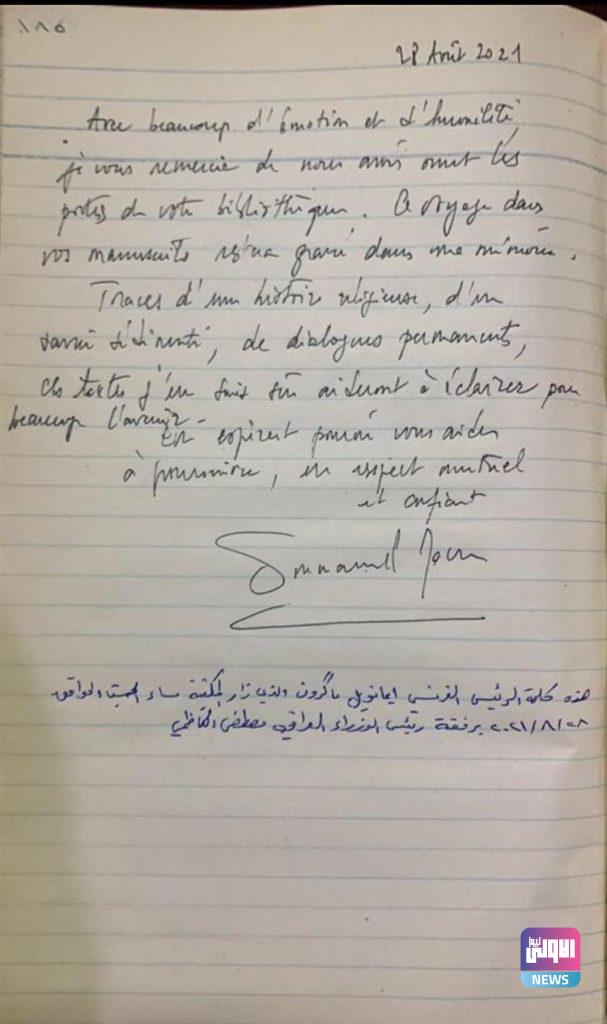 ١٨٥
28 Août 2021
Avec beaucoup d'émotion et d'humilité,
je vous remercie de nous avoir ouvert les
portes de votre bibliothèque. Ce voyage dans
vos manuscrits restera gravé dans ma mémoire.
Traces d'une histoire religieuse, d'un
savoir, de dialogues permanents,
ces textes j'en suis sûr aideront à éclairer pour
beaucoup l'avenir.
En espérant pouvoir vous aider
à poursuivre, en respect mutuel
et confiant
Emmanuel Macron
هذه كلمة الرئيس الفرنسي ايمانويل ماكرون والذي زار المكتبة مساء السبت الموافق
٢٠٢١/٨/٢٨ برفقة رئيس الوزراء العراقي مصطفى الكاظمي
الاولى نيوز
NEWS